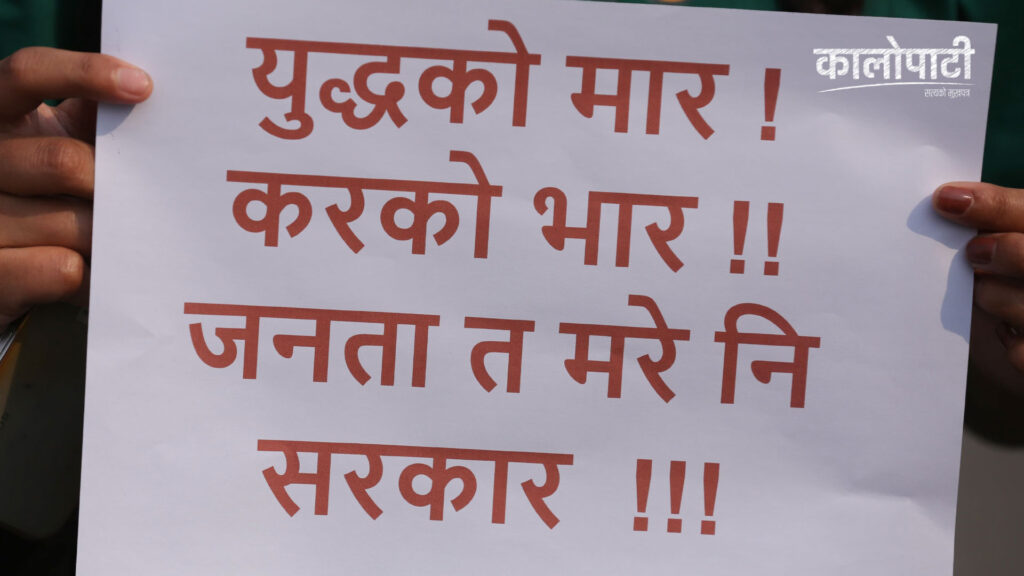 कालोपाटी
सत्यको मुखपत्र
युद्धको मार !
करको भार !!
जनता त मरे नि
सरकार !!!